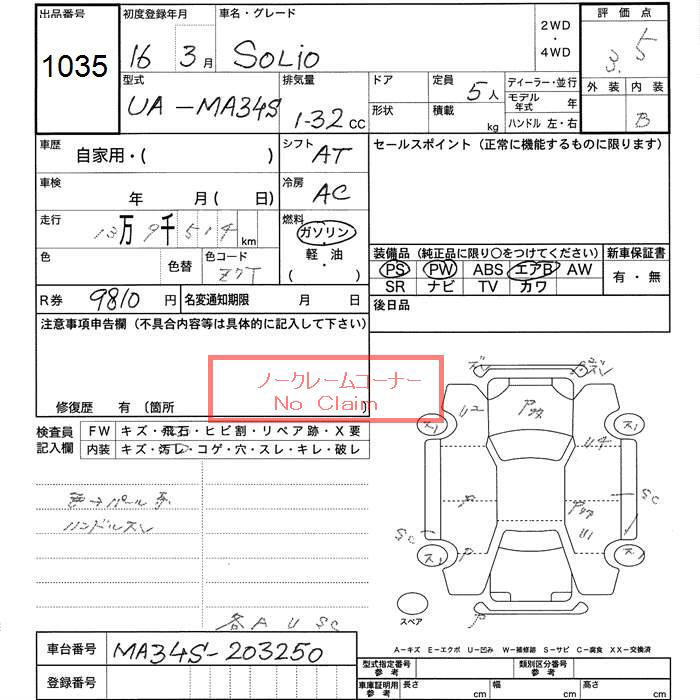 出品番号 初度登録年月 車名・グレード 2WD・4WD 評価点
1035 16 3月 SOLIO 3.5
型式 排気量 ドア 定員 5人 ディーラー・並行 外装 内装
UA-MA34S 1-32cc 形状 積載 kg モデル年式 年 B
ハンドル 左・右
車歴 自家用・( ) シフト AT セールスポイント(正常に機能するものに限ります)
車検 年 月( 日) 冷房 AC
走行 13万9千514km 燃料 ガソリン・軽油( )
色 色替 色コード Z7T
装備品(純正品に限り○をつけてください) 新車保証書
PS PW ABS エアB AW 有・無
SR ナビ TV カワ
R券 9810円 名変通知期限 月 日 後日品
注意事項申告欄(不具合内容等は具体的に記入して下さい)
ノークレームコーナー
No Claim
修復歴 有(箇所
検査員記入欄 FW キズ・飛石・ヒビ割・リペア跡・X要
内装 キズ・汚レ・コゲ・穴・スレ・キレ・破レ
ハンドルスレ
各A U SC
U2 U4 U1 SC SC
スペア
A-キズ E-エクボ U-凹み W-補修跡 S-サビ C-腐食 XX-交換済
車台番号 MA34S-203250
型式指定番号 参考 類別区分番号 参考
登録番号 車庫証明用参考 長さ cm 幅 cm 高さ cm